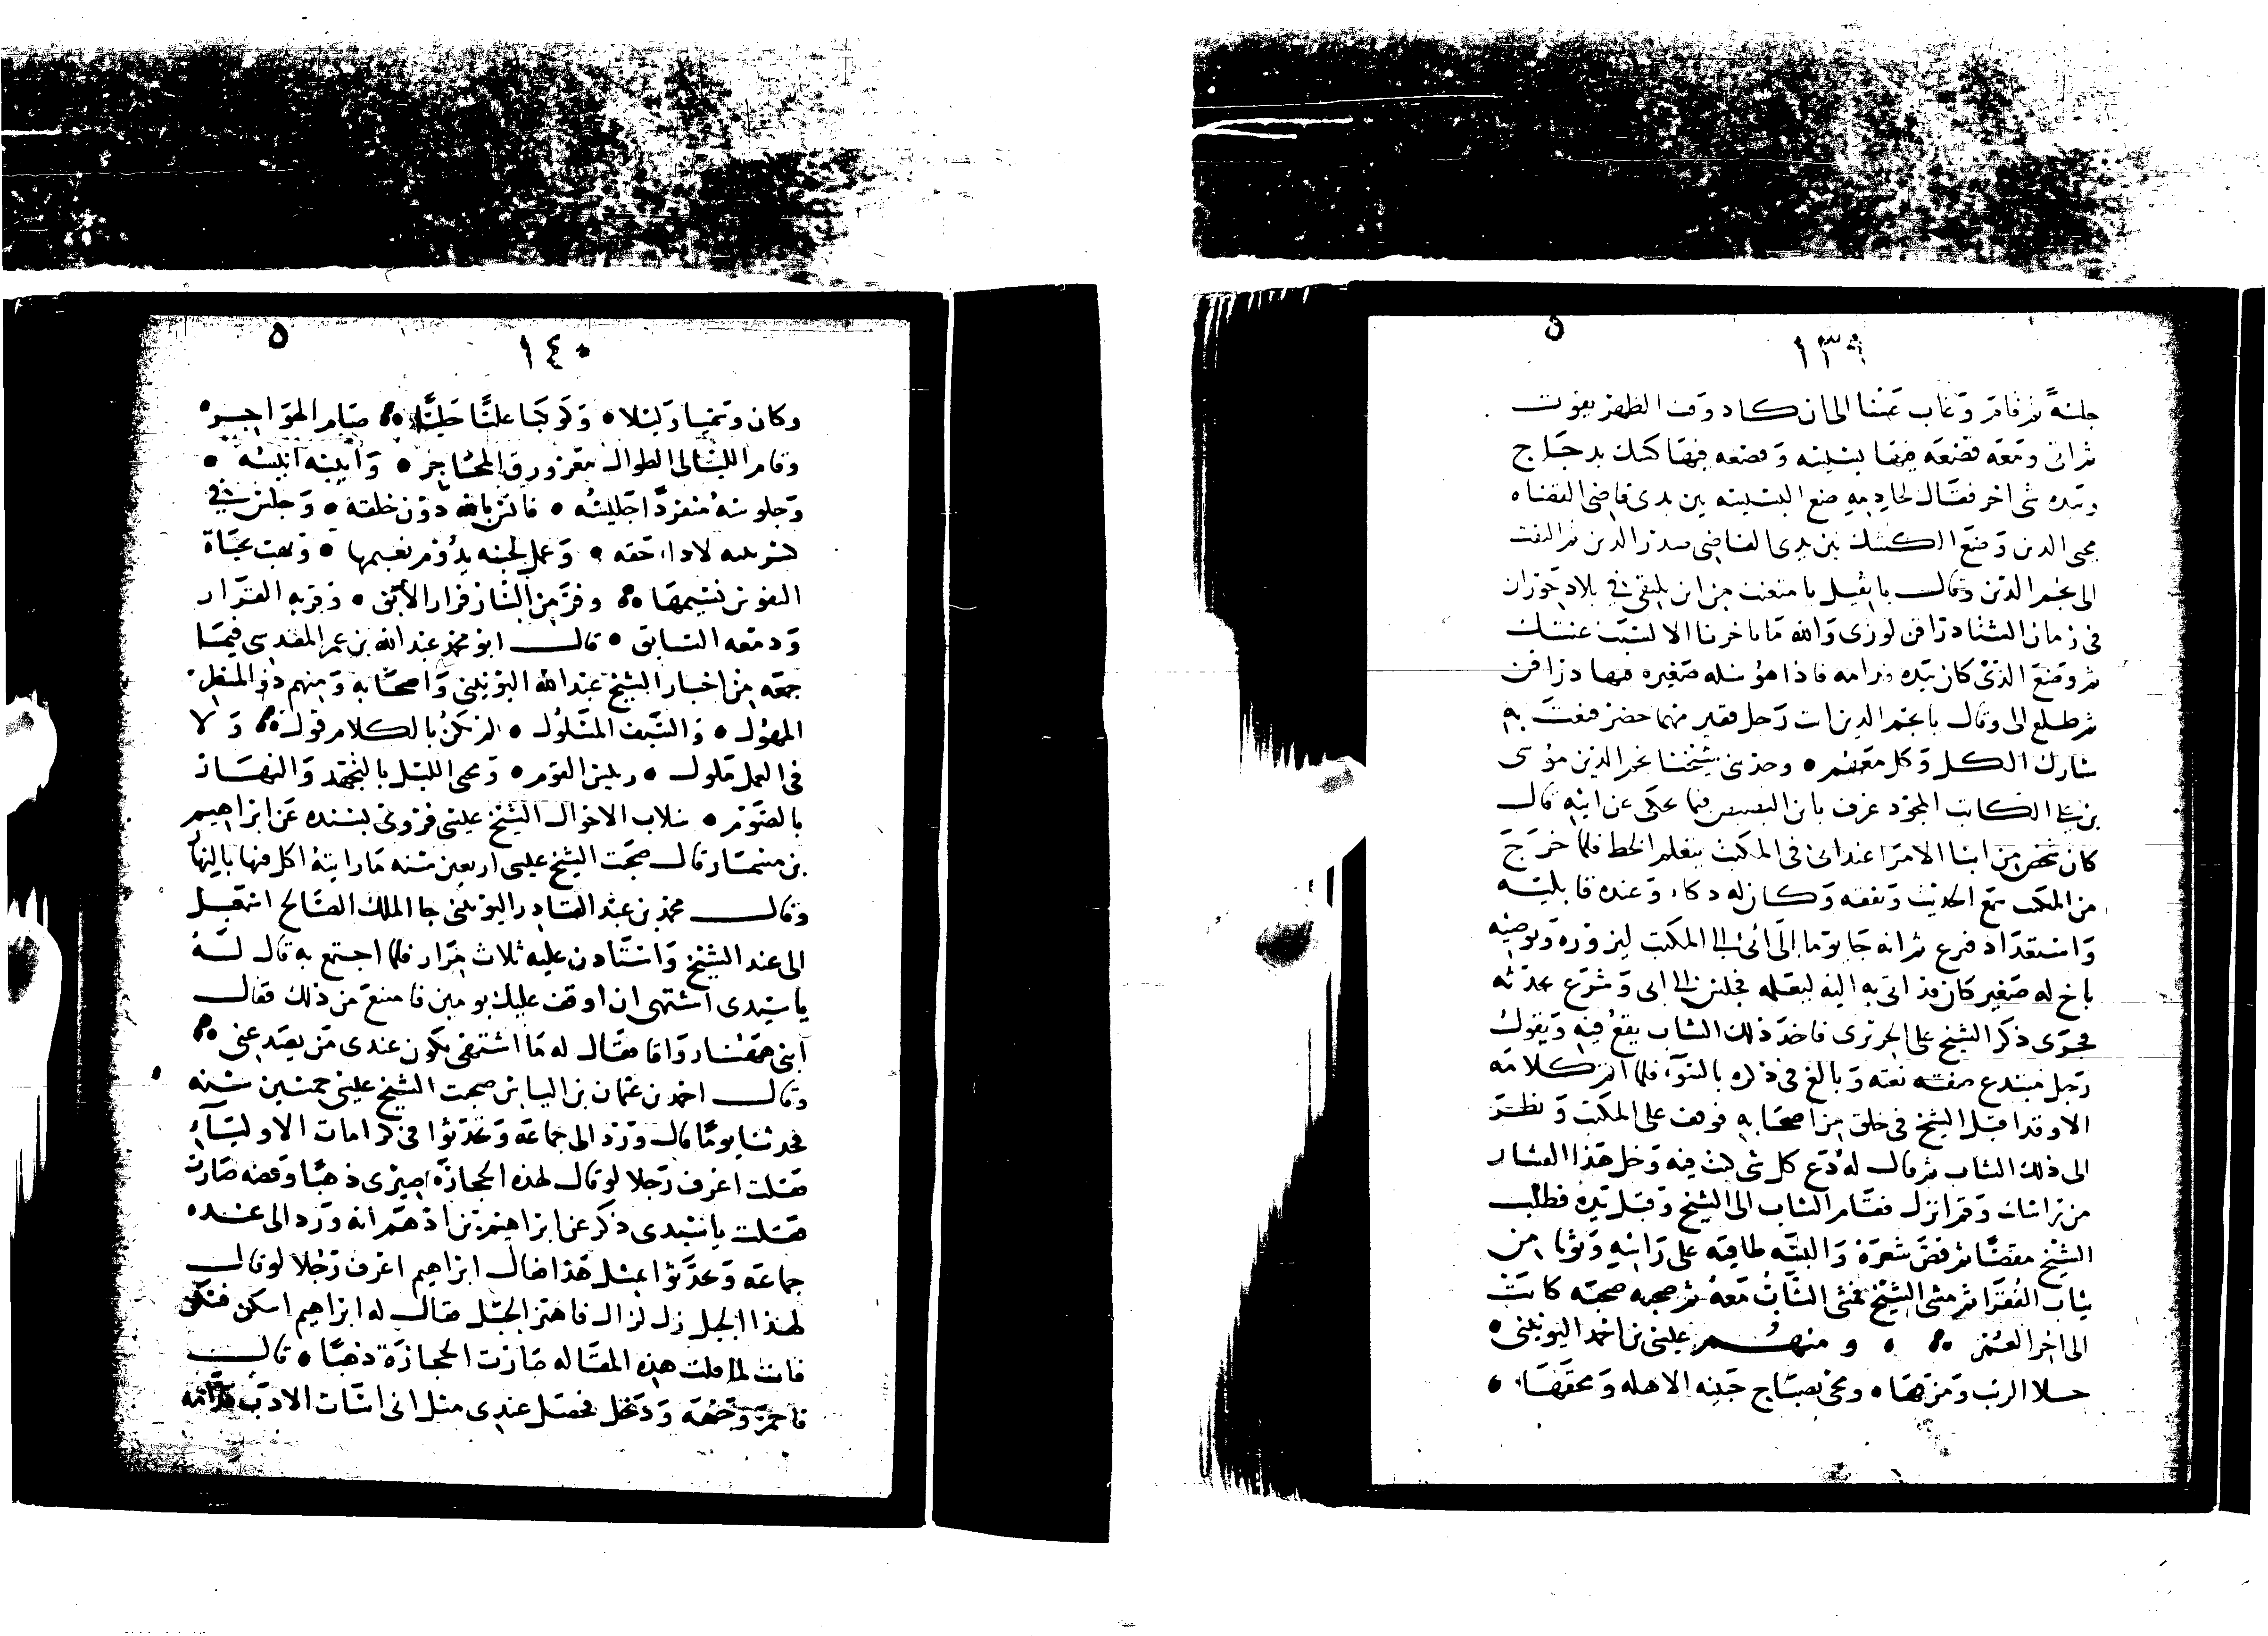 ١٣٩
جلسةً ثم قام وغاب عنا الى ان كاد وقت الظهر يفوت
ثم اتى ومعه قصعه فيها بسيسه وقصعه فيها كشك بدجاج
وبيده شى اخر فقال لخادمه ضع البسيسه بين يدى قاضى القضاه
محى الدين وضع الكشك بين يدى القاضى صدر الدين ثم التفت
الى نجم الدين وقال يا ثقيل يا متعنت من اين يلتقى فى بلاد حوران
فى زمان الشتا دراقن لوزى والله ما ما خرنا الا لسبب عنتك
ثم وضع الذى كان بيده قدامه فاذا هو سله صغيره فيها دراقن
ثم طلع الى وقال يا نجم الدين انت رجل فقير مهما حضر قنعت به
شارك الكل وكل معهم ٠ وحدثنى شيخنا نجم الدين موسى
بن على الكاتب المجود عرف بابن البصيص فيما حكى عن ابيه قال
كان شخص من ابنا الامرا عند ابى فى المكتب يتعلم الخط فلما خرج
من المكتب سمع الحديث وتفقه وكان له ذكاء وعنده قابليه
واستعداد فبرع ثم انه جا يوما الى ابى الى المكتب ليزوره ويوصيه
باخ له صغير كان قد اتى به اليه ليعلمه فجلس الى ابى وشرع يحدثه
فجرى ذكر الشيخ على الحريرى فاخذ ذلك الشاب يقع فيه ويقول
رجل مبتدع صفته نعته وبالغ فى ذكره بالسوء فلما اتم كلامه
الا وقد اقبل الشيخ فى خلق من اصحابه فوقف على المكتب ونظر
الى ذلك الشاب ثم قال له دع كل شى كنت فيه وخل هذا الفشار
من راسك وقم انزل فقام الشاب الى الشيخ وقبل يده فطلب
الشيخ مقصا ثم قص شعره والبسه طاقيه على راسه وثوبا من
ثياب الفقرا ثم مشى الشيخ فمشى الشاب معه ثم صحبه صحبه كانت
الى اخر العمر ٠ ومنهم عيسى بن احمد اليونينى ٠
جلا الريب ومزقها ٠ ومحى بصباح جبينه الاهله ومحقها ٠
١٤٠
وكان وسميا وليلا ٠ وكوكبا عليا جليا ٠ صيام الهواجره
وقام الليالى الطوال مغرورق المحاجر ٠ وانينه انيسه ٠
وجلوسه منفردا جليسه ٠ فانس بالله دون خلقه ٠ وجلس فى
لاداء حقه ٠ وعمل لجنه يدوم نعيمها ٠ وبعث بحياة
النفوس نسيمها ٠ وفر من النار فرار الابق ٠ وقربه القرار
ودمعه السابق ٠ قال ابو محمد عبد الله بن عمر المقدسى فيما
جمعه من اخبار الشيخ عبد الله اليونينى واصحابه ومنهم ذو
المهول ٠ والسيف المسلول ٠ لم يكن بالكلام قول ٠ ولا
فى العمل ملول ٠ ريس القوم ٠ ومحى الليل بالتهجد والنهار
بالصوم ٠ سلاب الاحوال الشيخ عيسى فروى بسنده عن ابراهيم
بن قال صحبت الشيخ عيسى اربعين سنه ما رايته اكل فيها بالنهار
وقال محمد بن عبد القادر اليونينى جا الملك الصالح اسمعيل
الى عند الشيخ واستاذن عليه ثلاث مرار فلما اجتمع به قال له
يا سيدى اشتهى ان اوقف عليك يومين فامتنع من ذلك فقال
ابنى هاهنا رواقا فقال له ما اشتهى يكون عندى من يصد عنى ٠
وقال احمد بن عثمان بن الياس صحبت الشيخ عيسى خمسين سنه
فحدثنا يوما قال ورد الى جماعه وتحدثوا فى كرامات الاولياء
فقلت اعرف رجلا لو قال لهذه الحجارة صيرى ذهبا وفضه صارت
فقلت يا سيدى ذكر عن ابراهيم بن ادهم انه ورد الى عنده
جماعه وتحدثوا بمثل هذا فقال ابراهيم اعرف رجلا لو قال
لهذا الجبل زل لزال فاهتز الجبل فقال له ابراهيم اسكن فسكن
فانت لما قلت هذه المقاله صارت الحجارة ذهبا ٠ قال
فاحمر وجهه ودخل فحصل عندى مثل انى اسات الادب